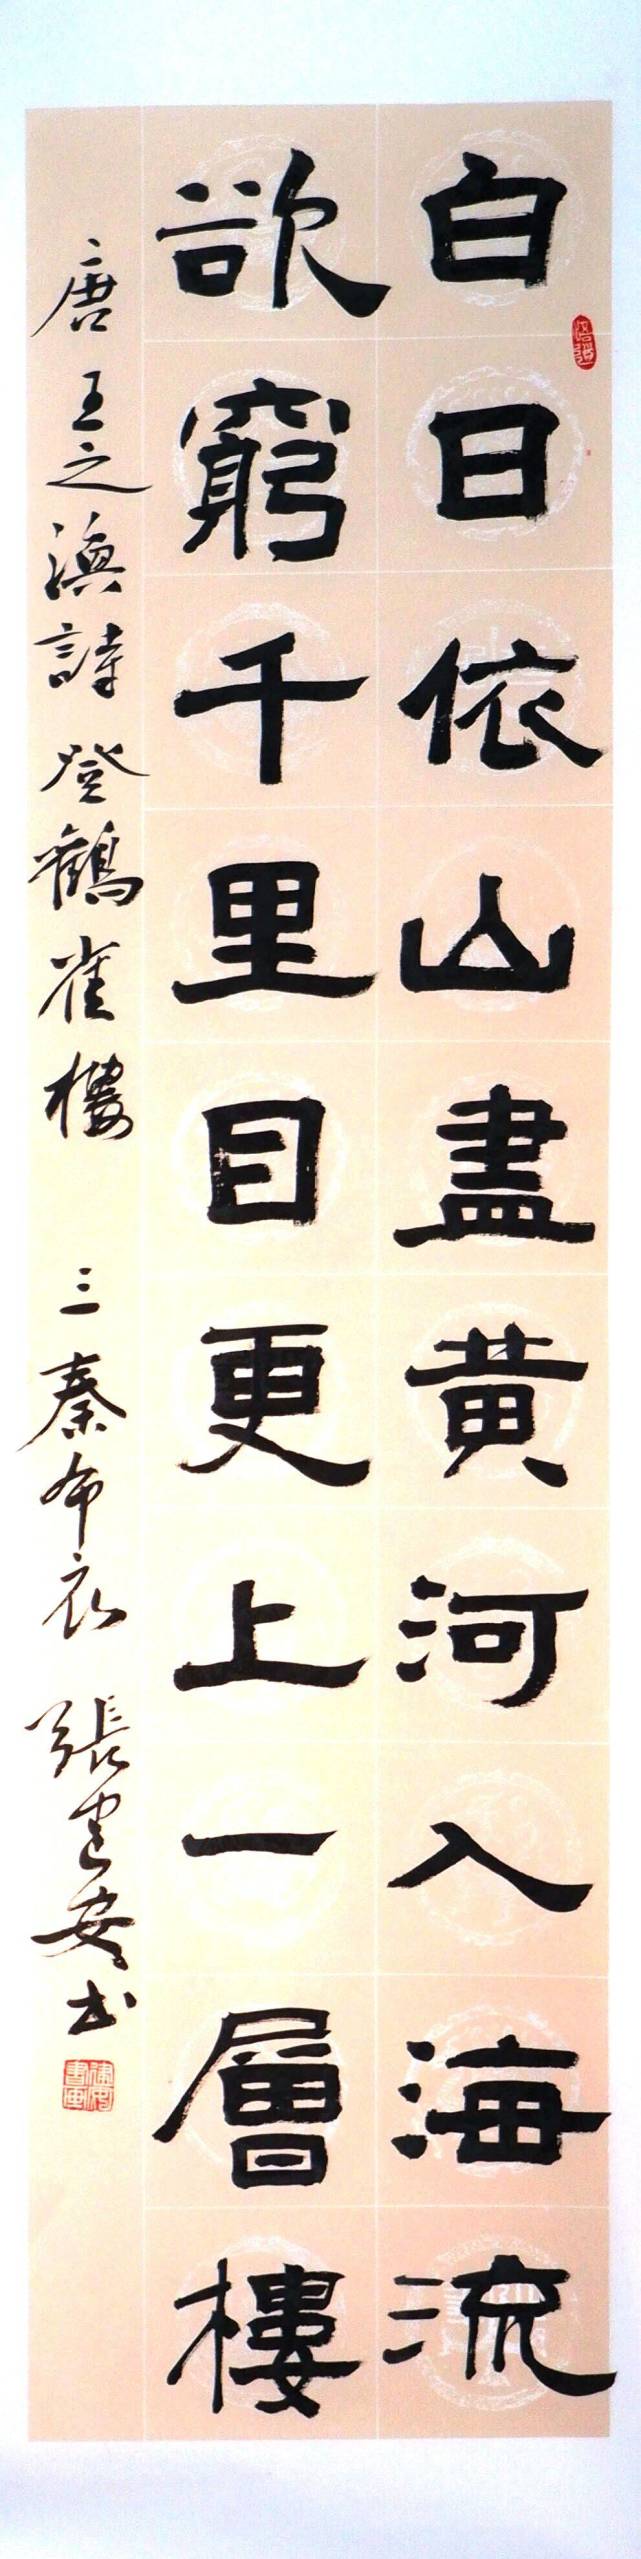 白日依山盡黄河入海流
欲窮千里目更上一層樓
唐王之渙詩登鸛雀樓 三秦布衣 張建安书
建安書画